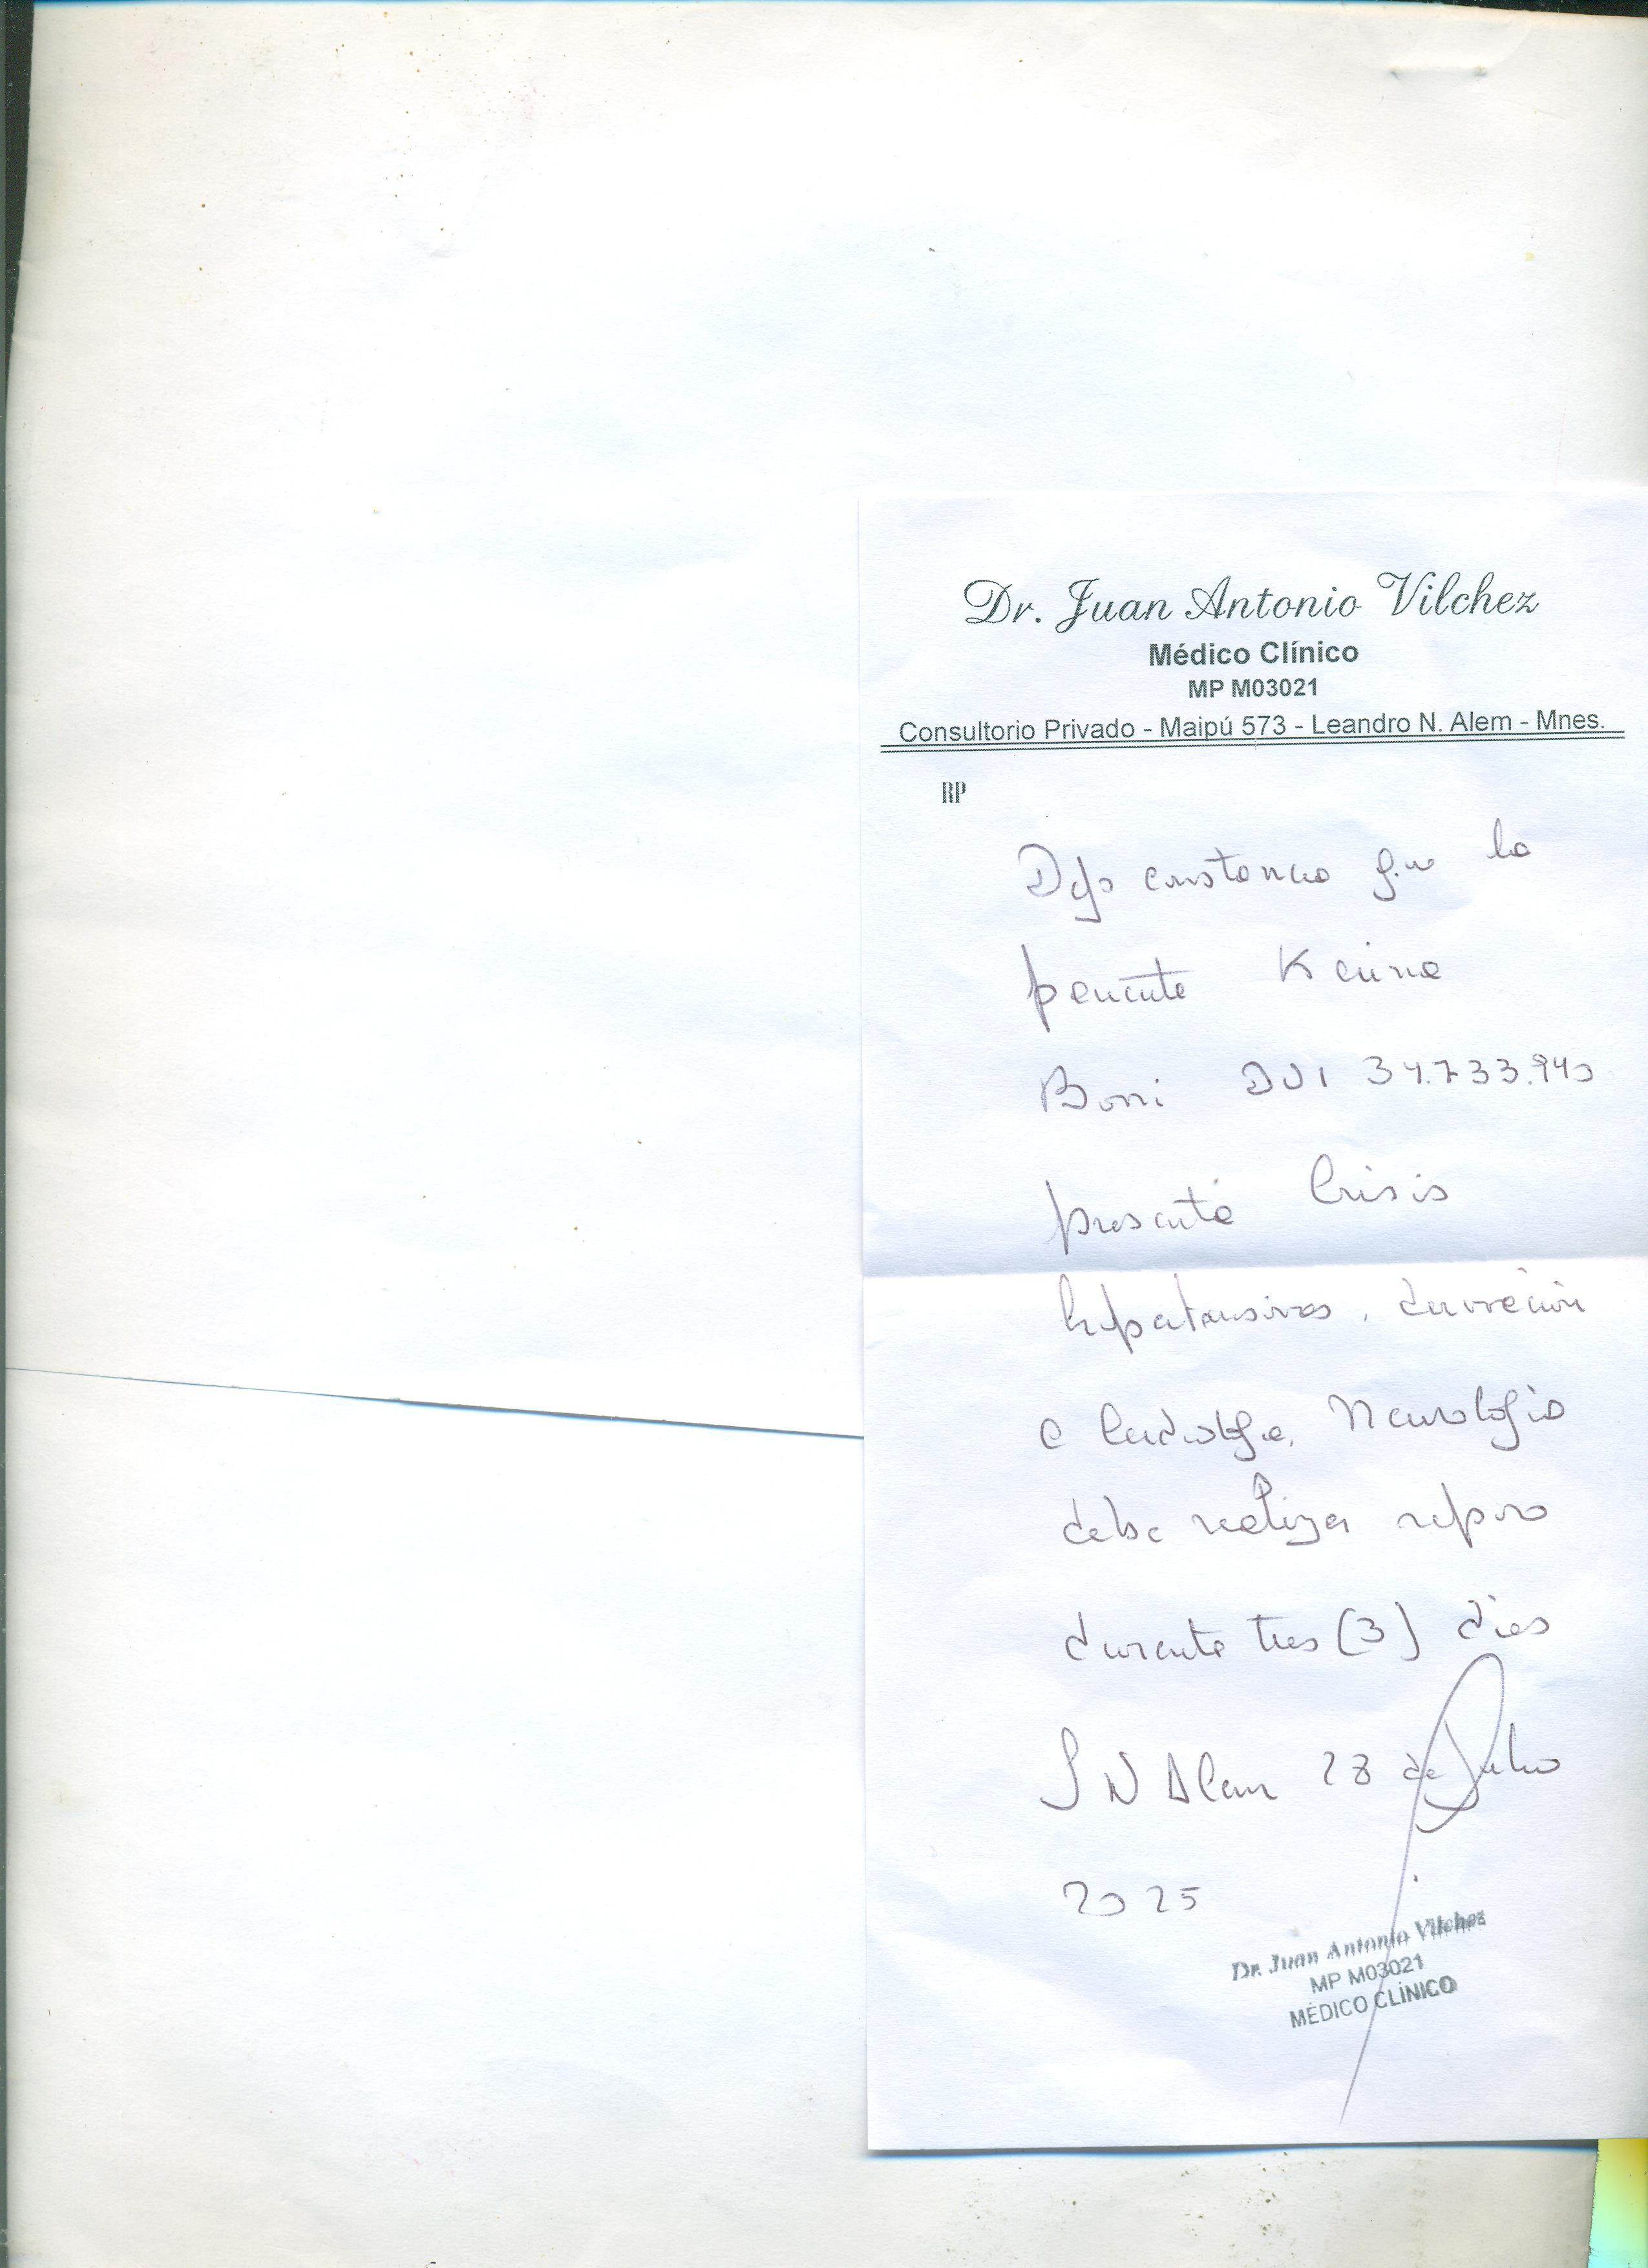 Dr. Juan Antonio Vilchez
Médico Clínico
MP M03021
Consultorio Privado - Maipú 573 - Leandro N. Alem - Mnes.
RP
Dejo constancia que la
paciente
DNI 34.733.940
presenta Crisis
hipertensivas, derivación
a Cardiología, Neurología
debe realizar reposo
durante tres (3) días
L N Alem 28 de Julio
2025
Dr. Juan Antonio Vilchez
MP M03021
MÉDICO CLÍNICO